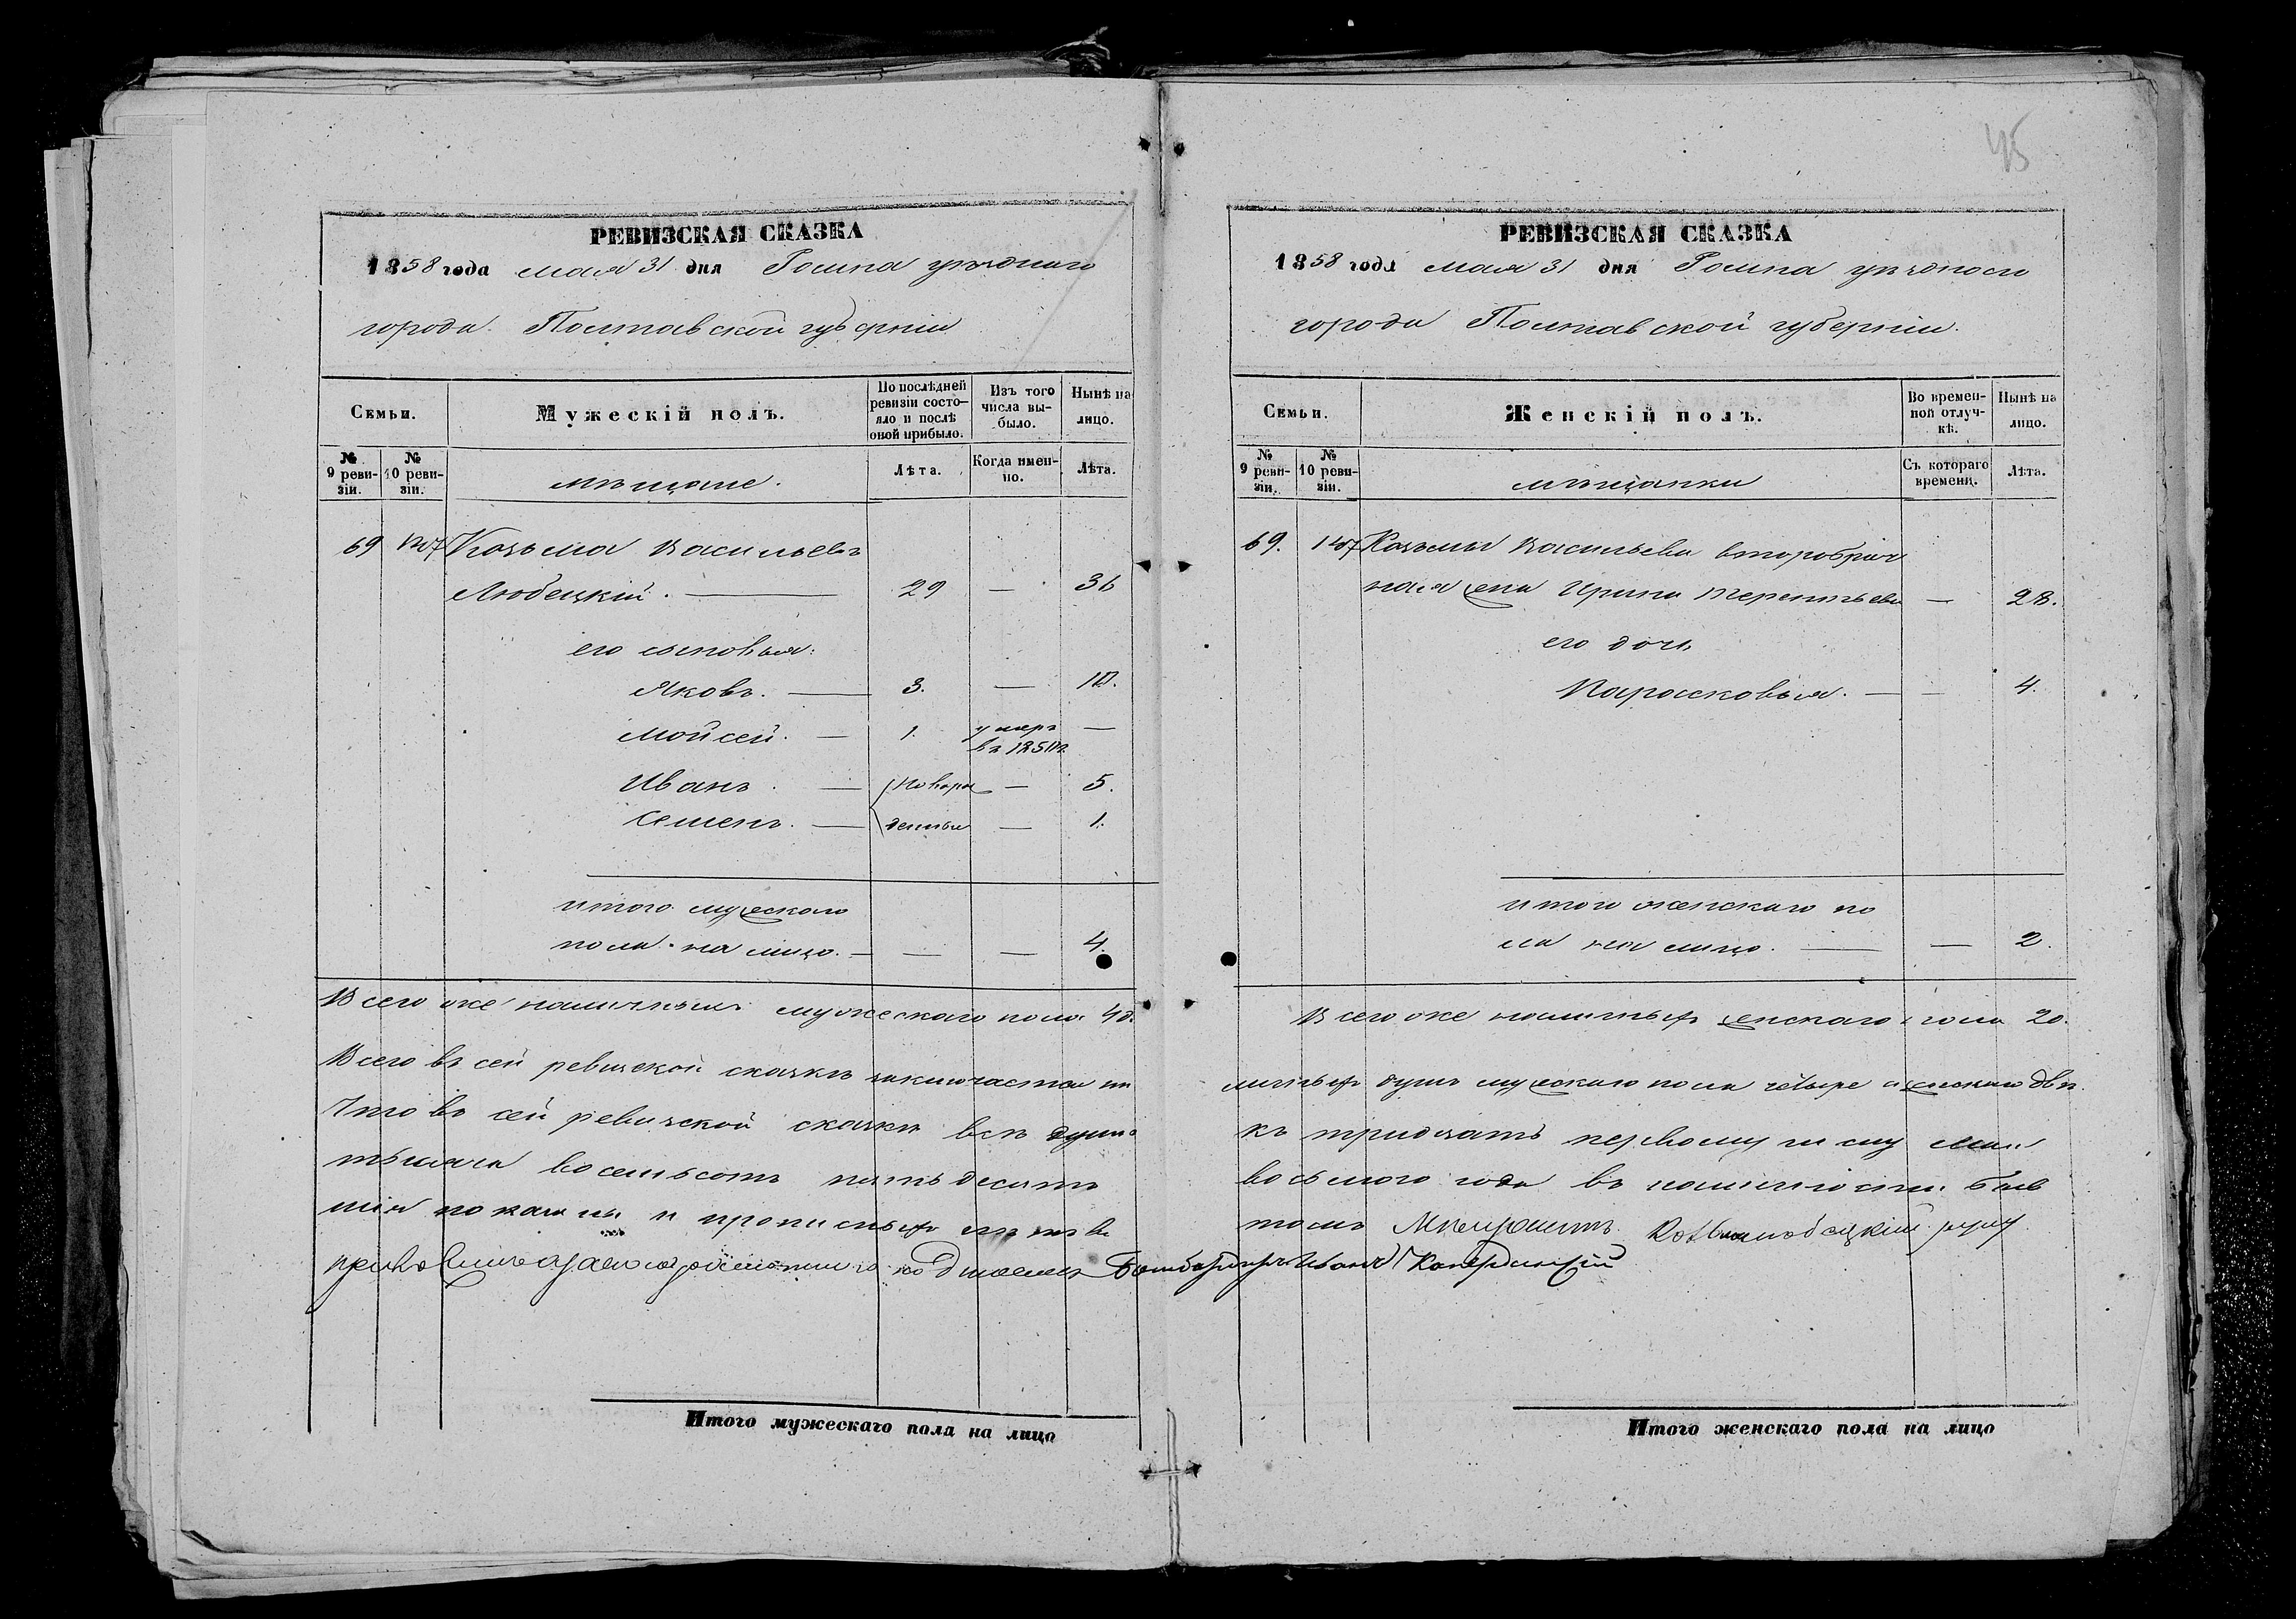 45
РЕВИЗСКАЯ СКАЗКА
1858 года мая 31 дня Ромна уѣзднаго
города Полтавской губерніи
Семьи.
Мужескій полъ.
По послѣдней ревизіи состояло и послѣ оной прибыло.
Изъ того числа выбыло.
Нынѣ на лицо.
№ 9 ревизіи.
№ 10 ревизіи.
мѣщане.
Лѣта.
Когда именно.
Лѣта.
69 Козьма Васильевъ
Любецкій. — 29 — 36
его сыновья:
Яковъ. — 3. — 10.
Мойсей. — 1. умеръ —
въ
Иванъ. — новоро — 5.
Семенъ. — денные — 1.
итого мужескаго
пола на лицо. — — — 4.
Всего же наличныхъ мужескаго пола 4 д.
Всего въ сей ревизской сказкѣ заключается на
Что въ сей ревизской сказкѣ всѣ души
тысяча восемьсотъ пятьдесятъ
показаны и
Итого мужескаго пола на лицо
РЕВИЗСКАЯ СКАЗКА
1858 года мая 31 дня Ромна уѣзднаго
города Полтавской губерніи.
Семьи.
Женскій полъ.
Во временной отлучкѣ.
Нынѣ на лицо.
№ 9 ревизіи.
№ 10 ревизіи.
мѣщанки
Съ котораго времени.
Лѣта.
69. Козьмы Васильева второбрач
ная жена Ирина Терентьева — 28.
его дочь
Парасковья. — — 4.
итого женскаго по
ла на лицо. — — 2.
Всего же наличныхъ женскаго пола 2 д.
личныхъ душъ мужескаго пола четыре а женскаго двѣ.
къ тридцать первому числу мая
восьмого года въ наличности
томъ Мѣщанинъ
Иванъ
Итого женскаго пола на лицо